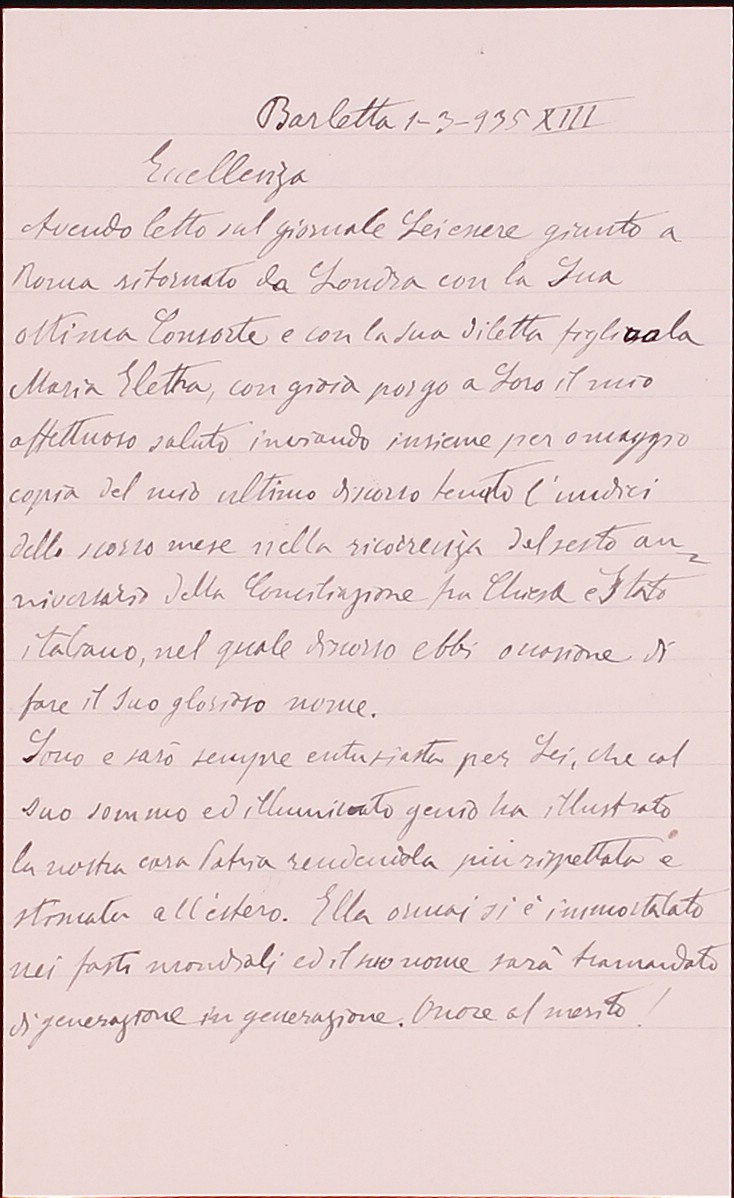 Barletta 1-3-935 XIII
Eccellenza
Avendo letto sul giornale Lei essere giunto a
Roma ritornato da Londra con la Sua
ottima Consorte e con la sua diletta figliuola
Maria Elettra, con gioia porgo a Loro il mio
affettuoso saluto inviando insieme per omaggio
copia del mio ultimo discorso tenuto l'undici
dello scorso mese nella ricorrenza del sesto an=
niversario della Conciliazione fra Chiesa e Stato
italiano, nel quale discorso ebbi occasione di
fare il Suo glorioso nome.
Sono e sarò sempre entusiasta per Lei, che col
suo sommo ed illuminato genio ha illustrato
la nostra cara Patria rendendola più rispettata e
stimata all'estero. Ella ormai si è immortalato
nei fasti mondiali ed il suo nome sarà tramandato
di generazione in generazione. Onore al merito!